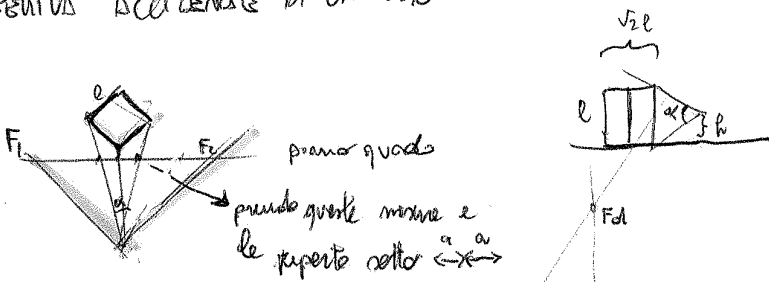 ACCIDENTALE DI UN
√2 l
l
l
α
h
F1
F2
piano quadro
α
prendo queste misure e
le riporto sotto a a
Fd